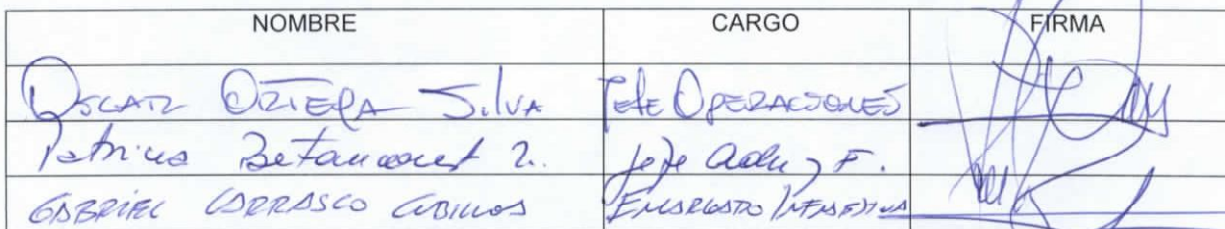 NOMBRE CARGO FIRMA
OSCAR ORTEGA SILVA Jefe OPERACIONES
Patricio Betancourt R. Jefe Adm y F.
GABRIEL CARRASCO CUBILLOS ENCARGADO